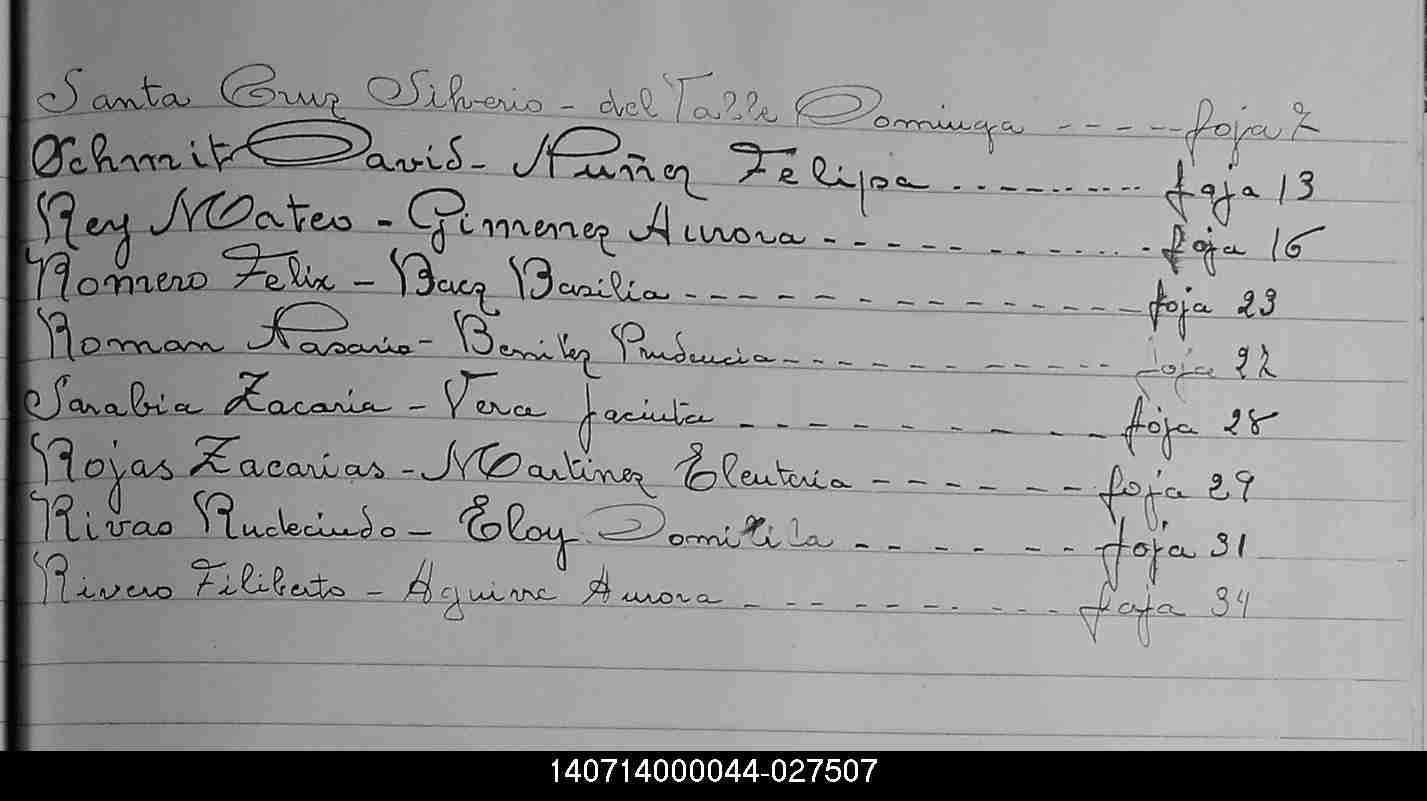 Santa Cruz Silverio - del Valle Dominga ----- foja 7
Schmit David - Nuñez Felipa ---------- foja 13
Rey Mateo - Gimenez Aurora ------------ foja 16
Romero Felix - Baez Basilia -------------- foja 23
Roman Nasario - Benitez Prudencia ----------- foja 27
Sarabia Zacaria - Vera Jacinta --------- foja 28
Rojas Zacarias - Martinez Eleuteria ------ foja 29
Rivas Rudecindo - Eloy Domitila ------ foja 31
Rivero Filiberto - Aguirre Aurora --------- foja 34
140714000044-027507